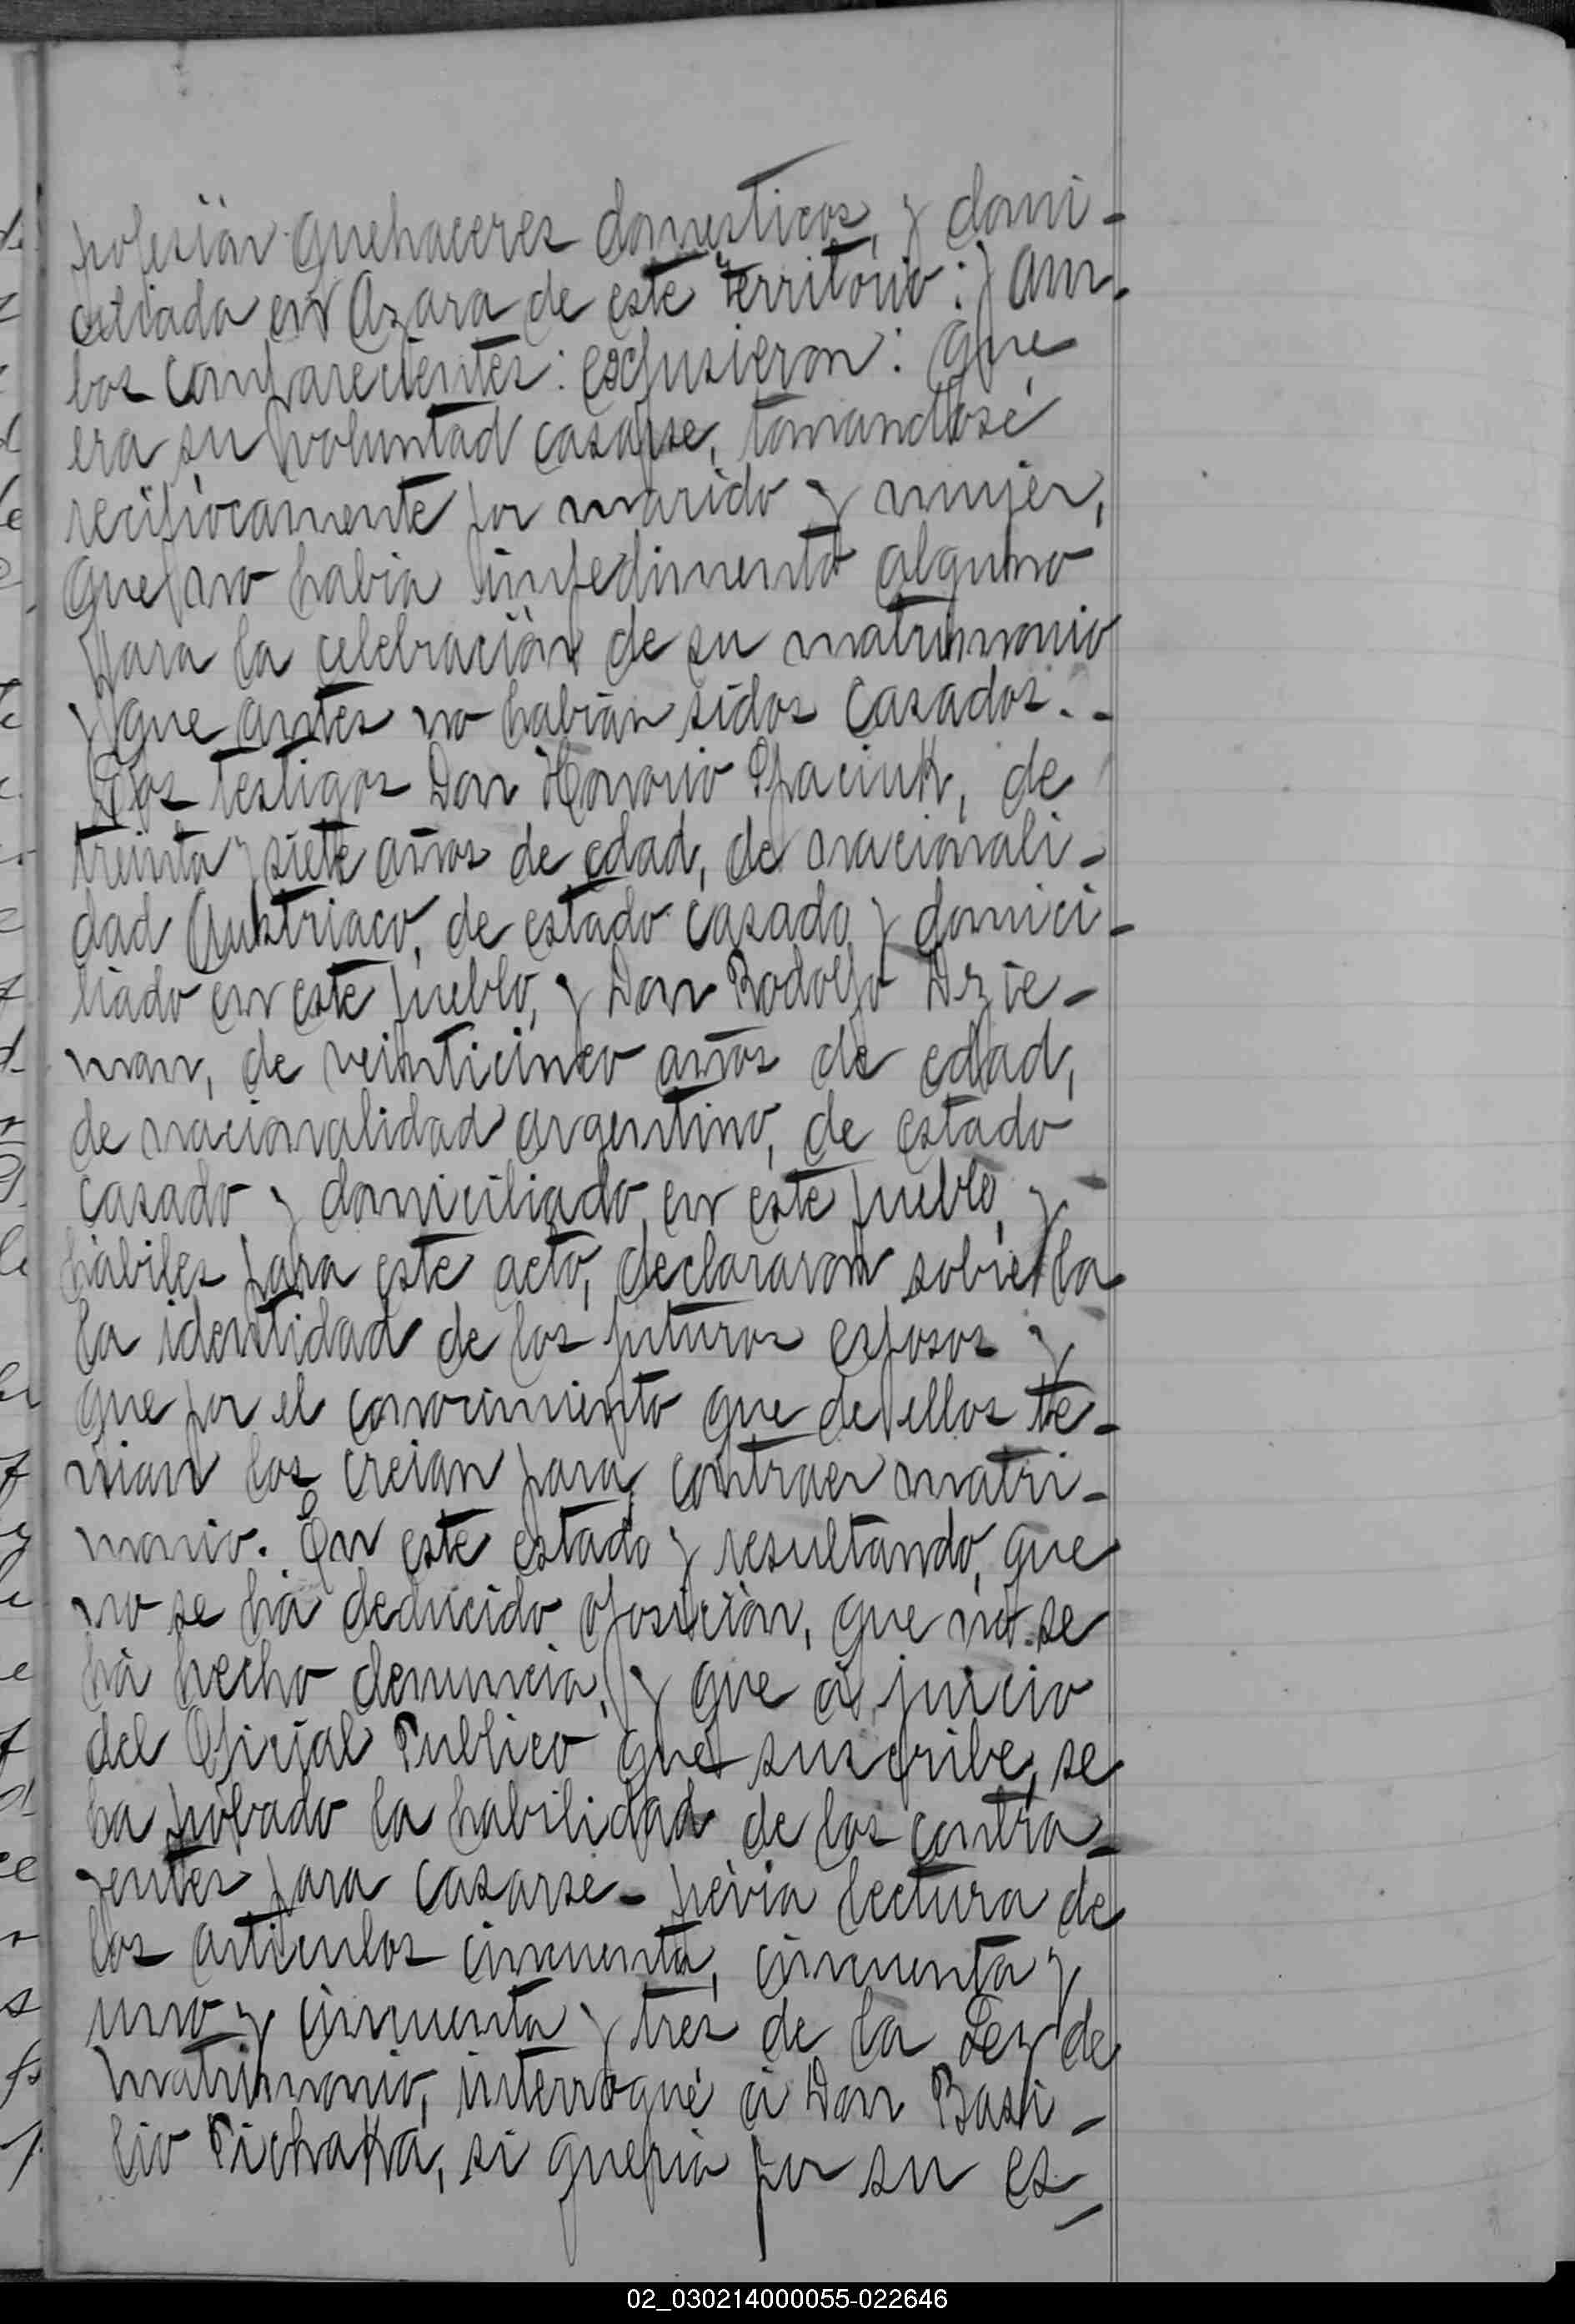 profesiòn quehaceres domesticos, y domi-
ciliada en Azara de este territorio: y am-
bos comparecientes: expusieron: que
era su voluntad casarse, tomandosé
reciprocamente por marido y mujer,
que no habia impedimento alguno
para la celebraciòn de su matrimonio
y que antes no habian sidos casados.-
Los testigos Don Honorio Spaciuk, de
treinta y siete años de edad, de nacionali-
dad Austriaco, de estado casado y domici-
liado en este pueblo, y Don Rodolfo Dzie-
man, de veinticinco años de edad,
de nacionalidad argentino, de estado
casado y domiciliado en este pueblo, y
hàbiles para este acto, declararon sobre la
la identidad de los futuros esposos y
que por el conocimiento que de ellos te-
nian los creian para contraer matri-
monio. En este estado y resultando, que
no se hà deducido oposiciòn, que no se
hà hecho denuncia, y que à juicio
del Oficial Publico que suscribe, se
ha probado la habilidad de los contra-
yentes para casarse- prèvia lectura de
los articulos cincuenta, cincuenta y
uno y cincuenta y tres de la Ley de
matrimonio, interroguè à Don Basi-
lio Pichaka, si queria por su es-
02_030214000055-022646